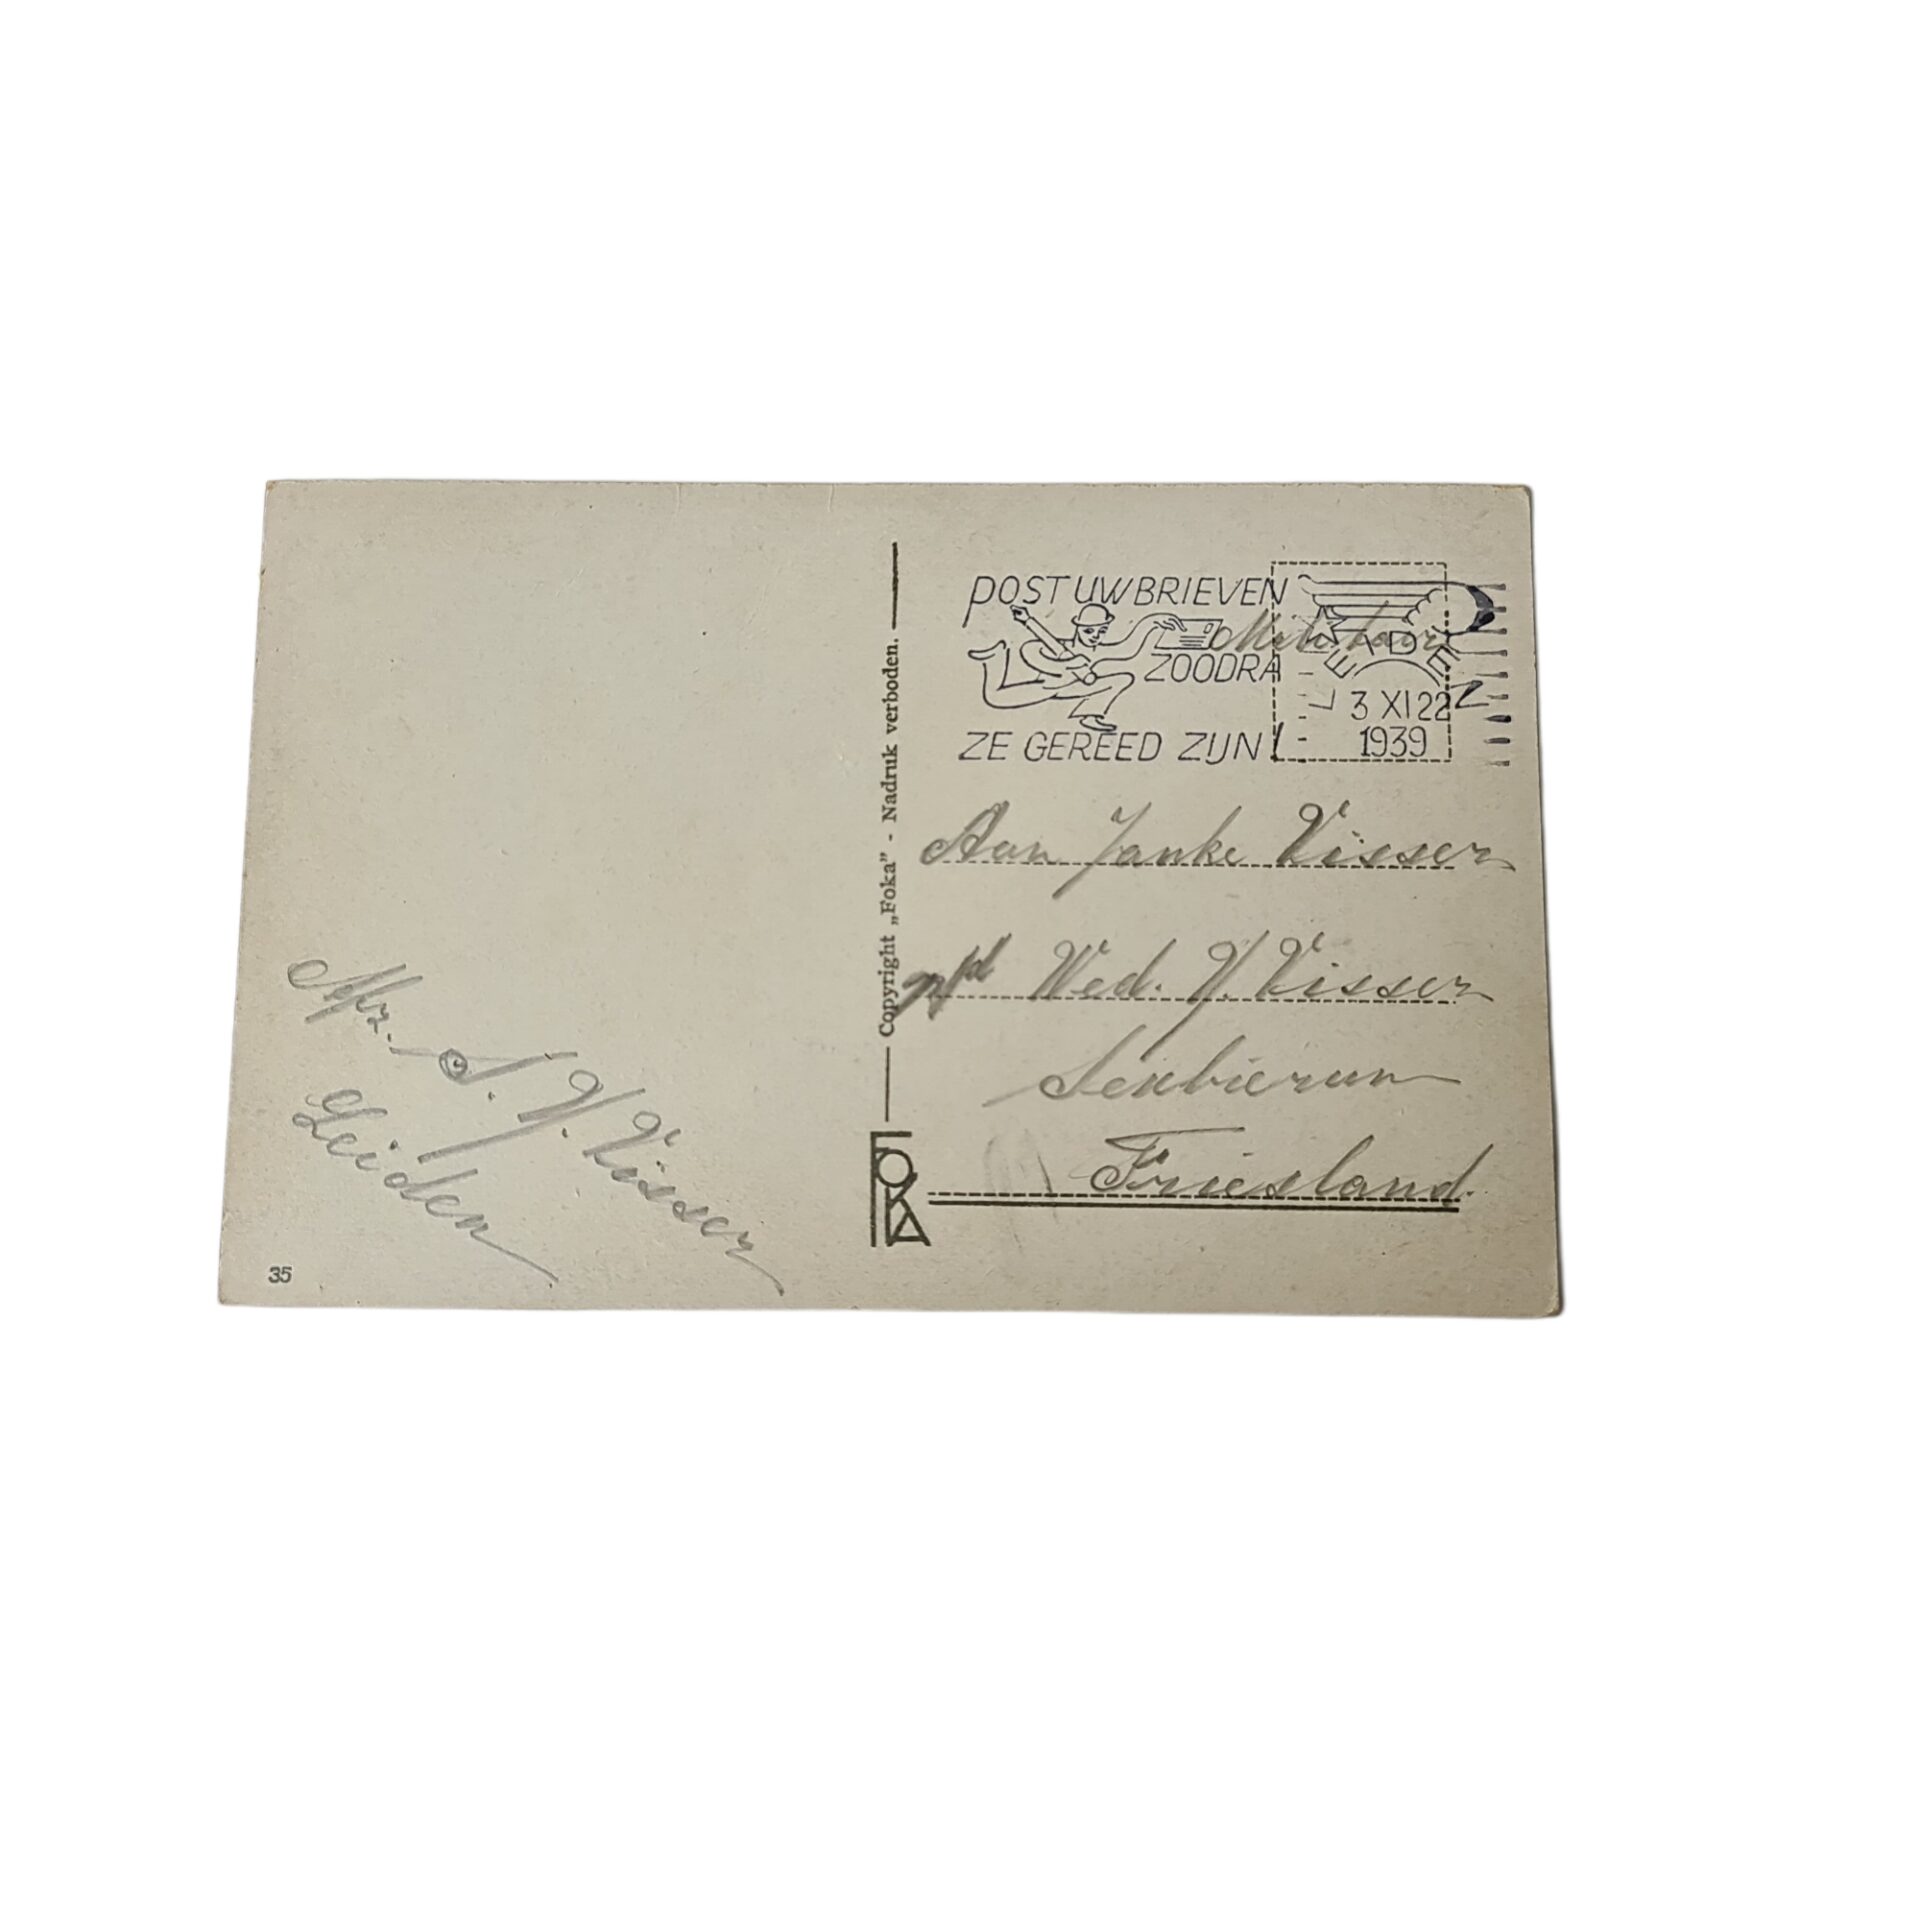 Afz. S. IJ. Visser
Leiden
35
Copyright „Foka" - Nadruk verboden.
FOKA
POST UW BRIEVEN
ZOODRA
ZE GEREED ZIJN!
Militair
LEIDEN
3 XI 22
1939
Aan Janke Visser
p/a Wed. IJ. Visser
Sexbierum
Friesland.